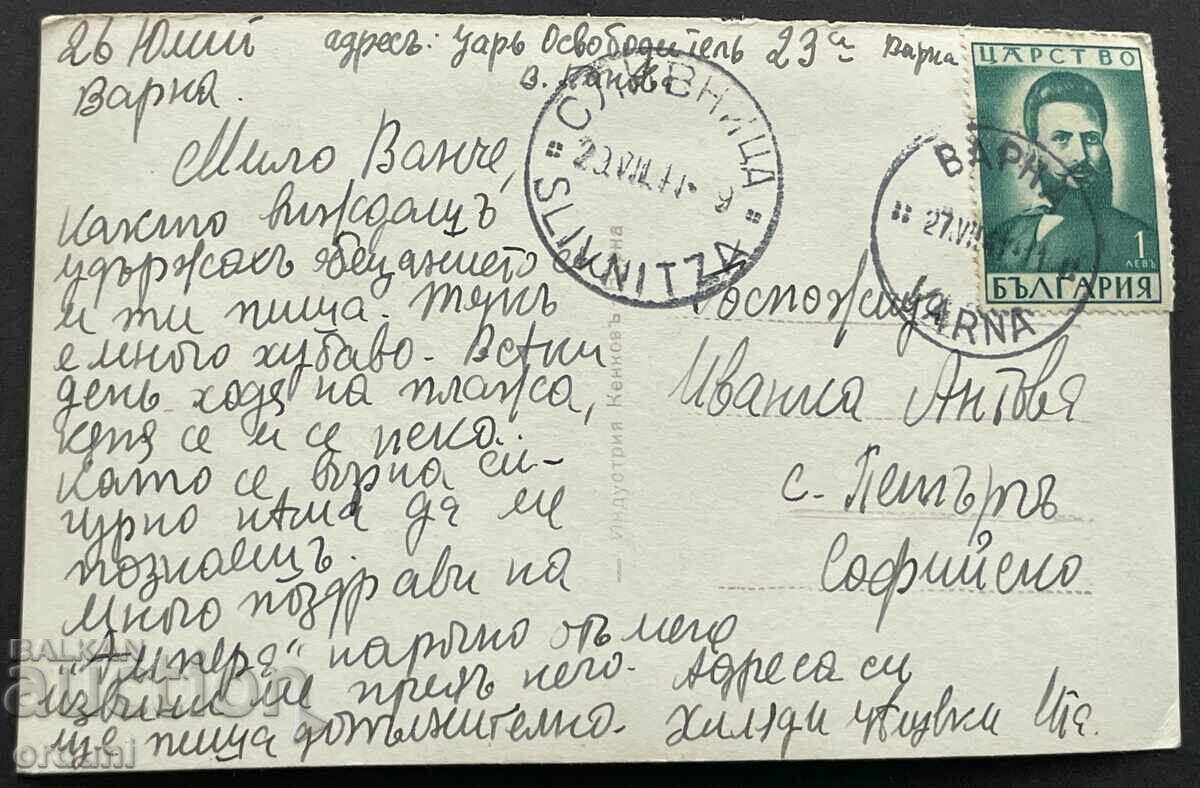 26 Юлий
Варна.
адресъ: Царь Освободитель 23а Варна
В.
Мило Ванче,
Както виждашъ
удържахъ обещанието си
и ти пиша. Тукъ
е много хубаво. Всѣки
день ходя на плажа,
кѫпя се и се пека.
Като се върна си-
гурно нѣма да ме
познаешъ.
Много поздрави на
наръчно отъ мене
извини ме предъ него. Адреса си
ще пиша допълнително. Хиляди цѣлувки
Госпожица
Иванка Антова
с. Петърчъ
Софийско
Индустрия Кенковъ
СЛИВНИЦА
29.VII.41-9
SLIVNITZA
ВАРНА
27.VII.41
VARNA
ЦАРСТВО
1
ЛЕВЪ
БЪЛГАРИЯ
BALKAN
auction
ordani